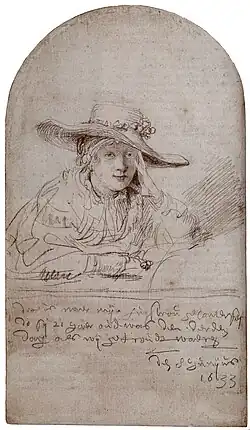 dit is naer mijn huijsvrou geconterfeijt
do sij 21 jaer oud was den derden
dach als wij getroudt waeren
den 8 junijus
1633